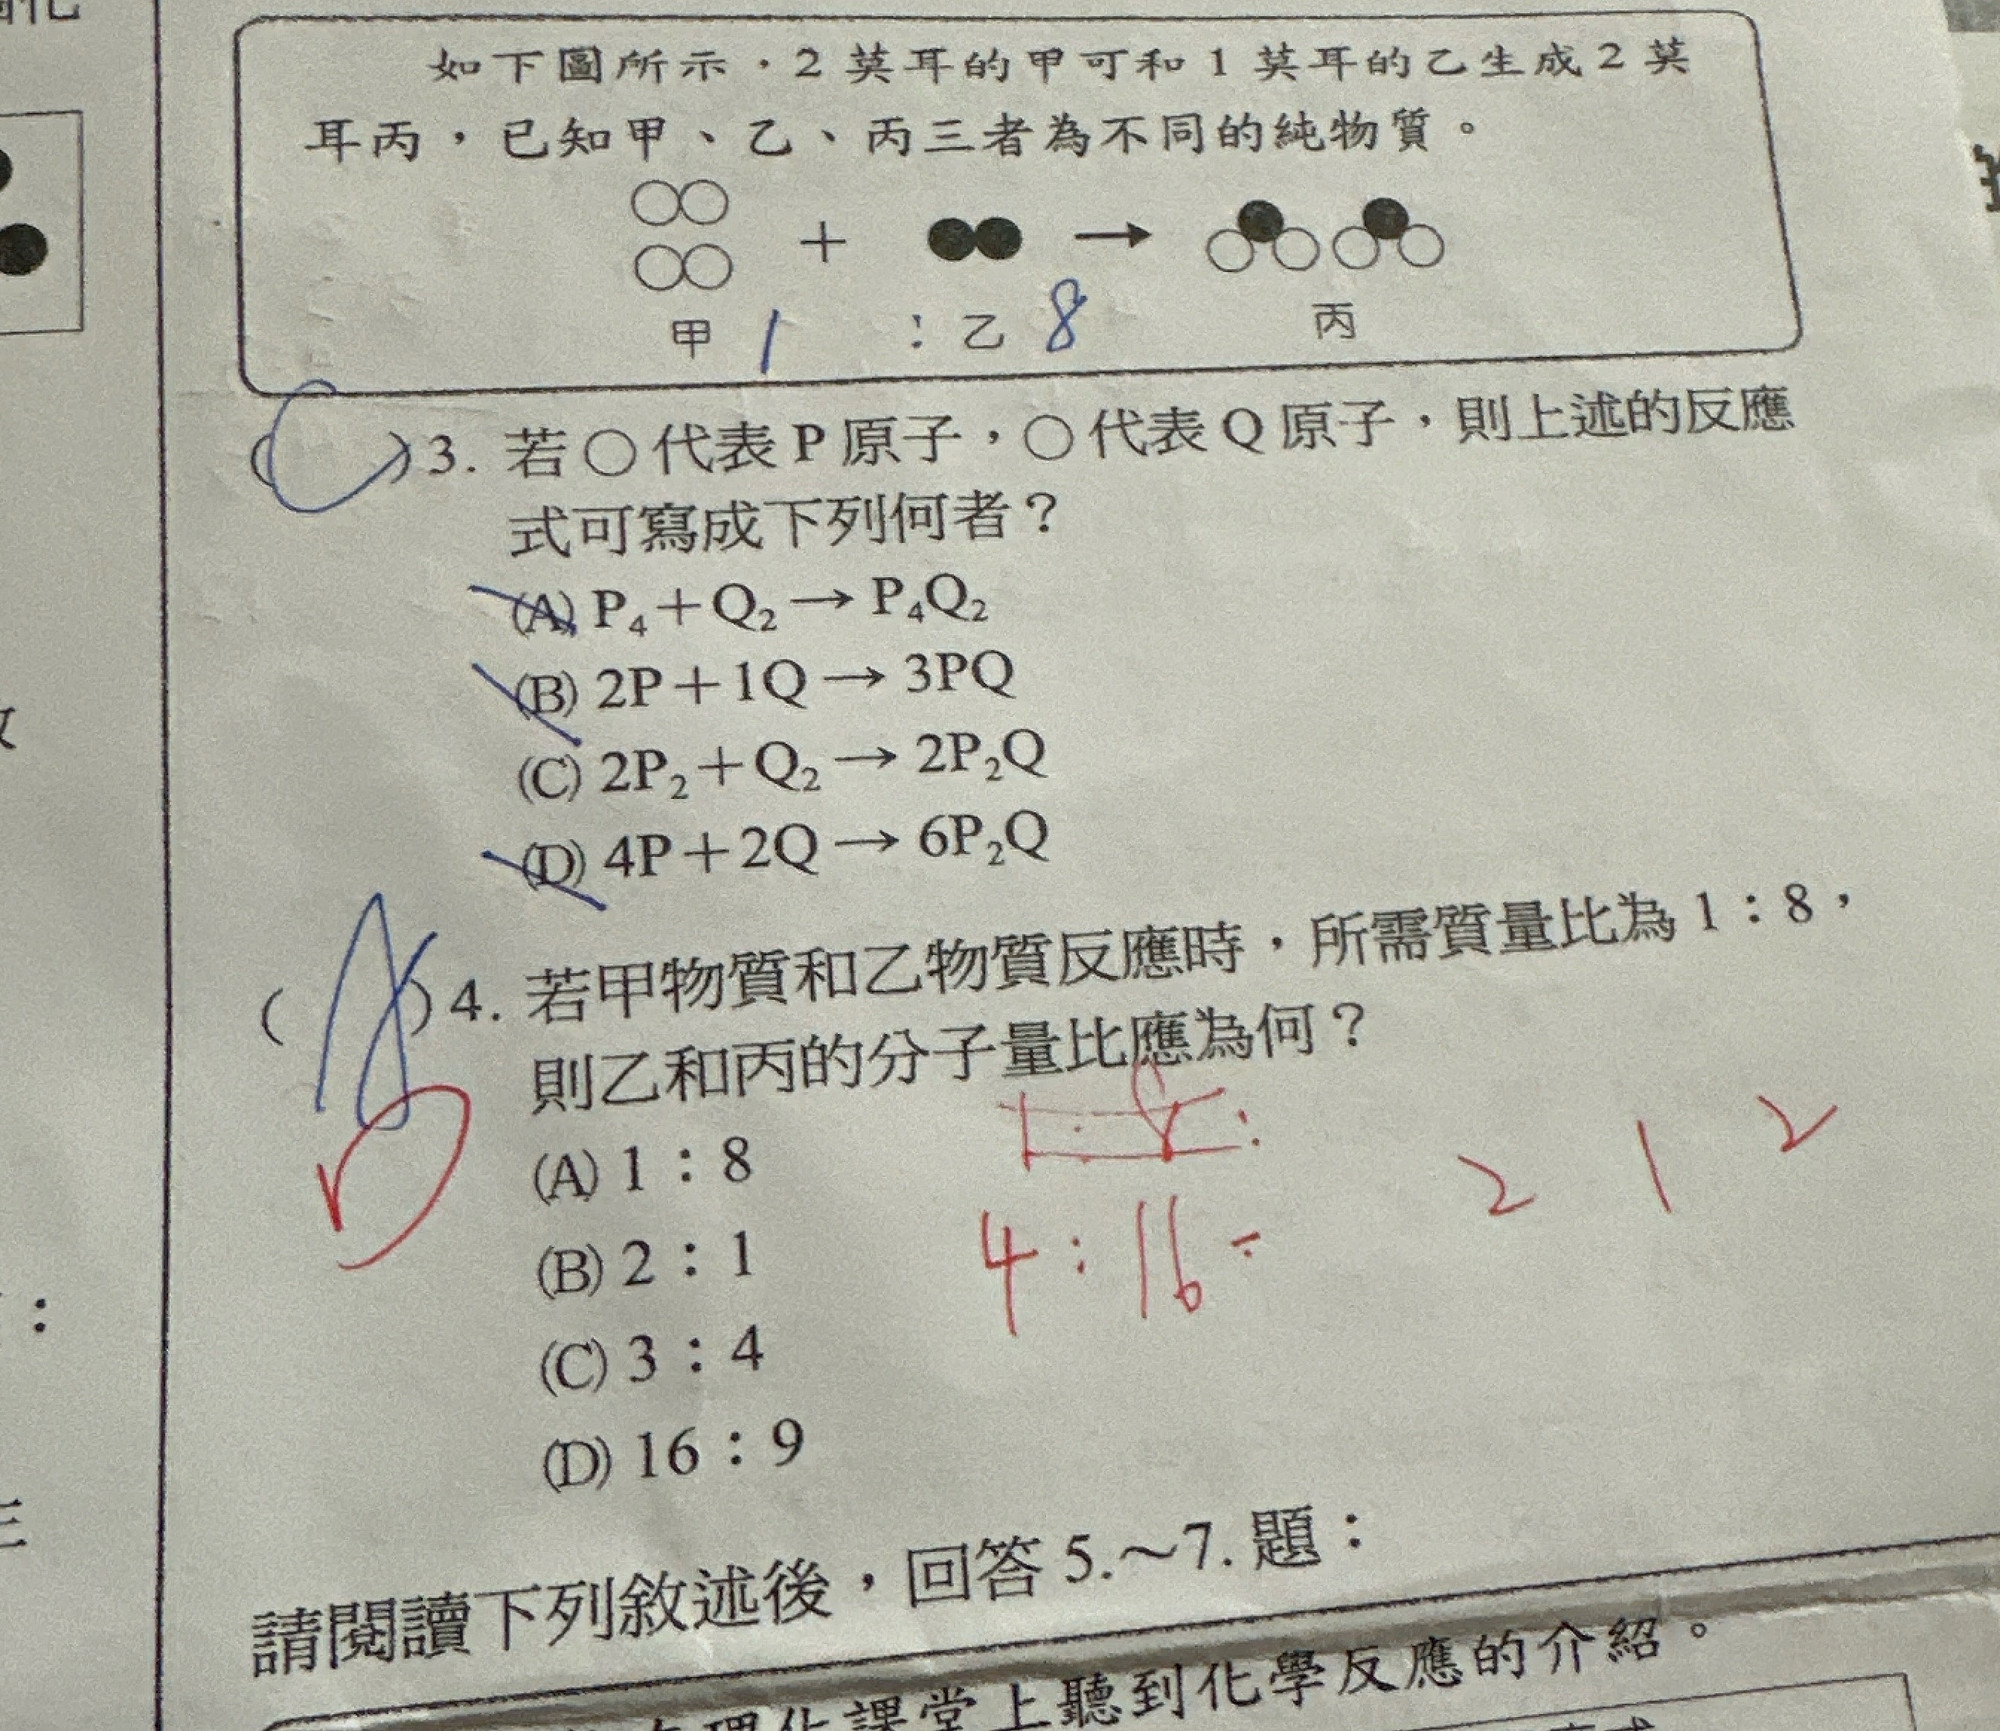 如下圖所示，2 莫耳的甲可和 1 莫耳的乙生成 2 莫
耳丙，已知甲、乙、丙三者為不同的純物質。
＋ →
甲 1 : 乙 8 丙
( C )3. 若○代表 P 原子，○代表 Q 原子，則上述的反應
式可寫成下列何者？
(A) P₄＋Q₂→P₄Q₂
(B) 2P＋1Q→3PQ
(C) 2P₂＋Q₂→2P₂Q
(D) 4P＋2Q→6P₂Q
( )4. 若甲物質和乙物質反應時，所需質量比為 1：8，
則乙和丙的分子量比應為何？
D
(A) 1：8
2 1 2
(B) 2：1
4 : 16 :
(C) 3：4
(D) 16：9
請閱讀下列敘述後，回答 5.～7. 題：
理化課堂上聽到化學反應的介紹。